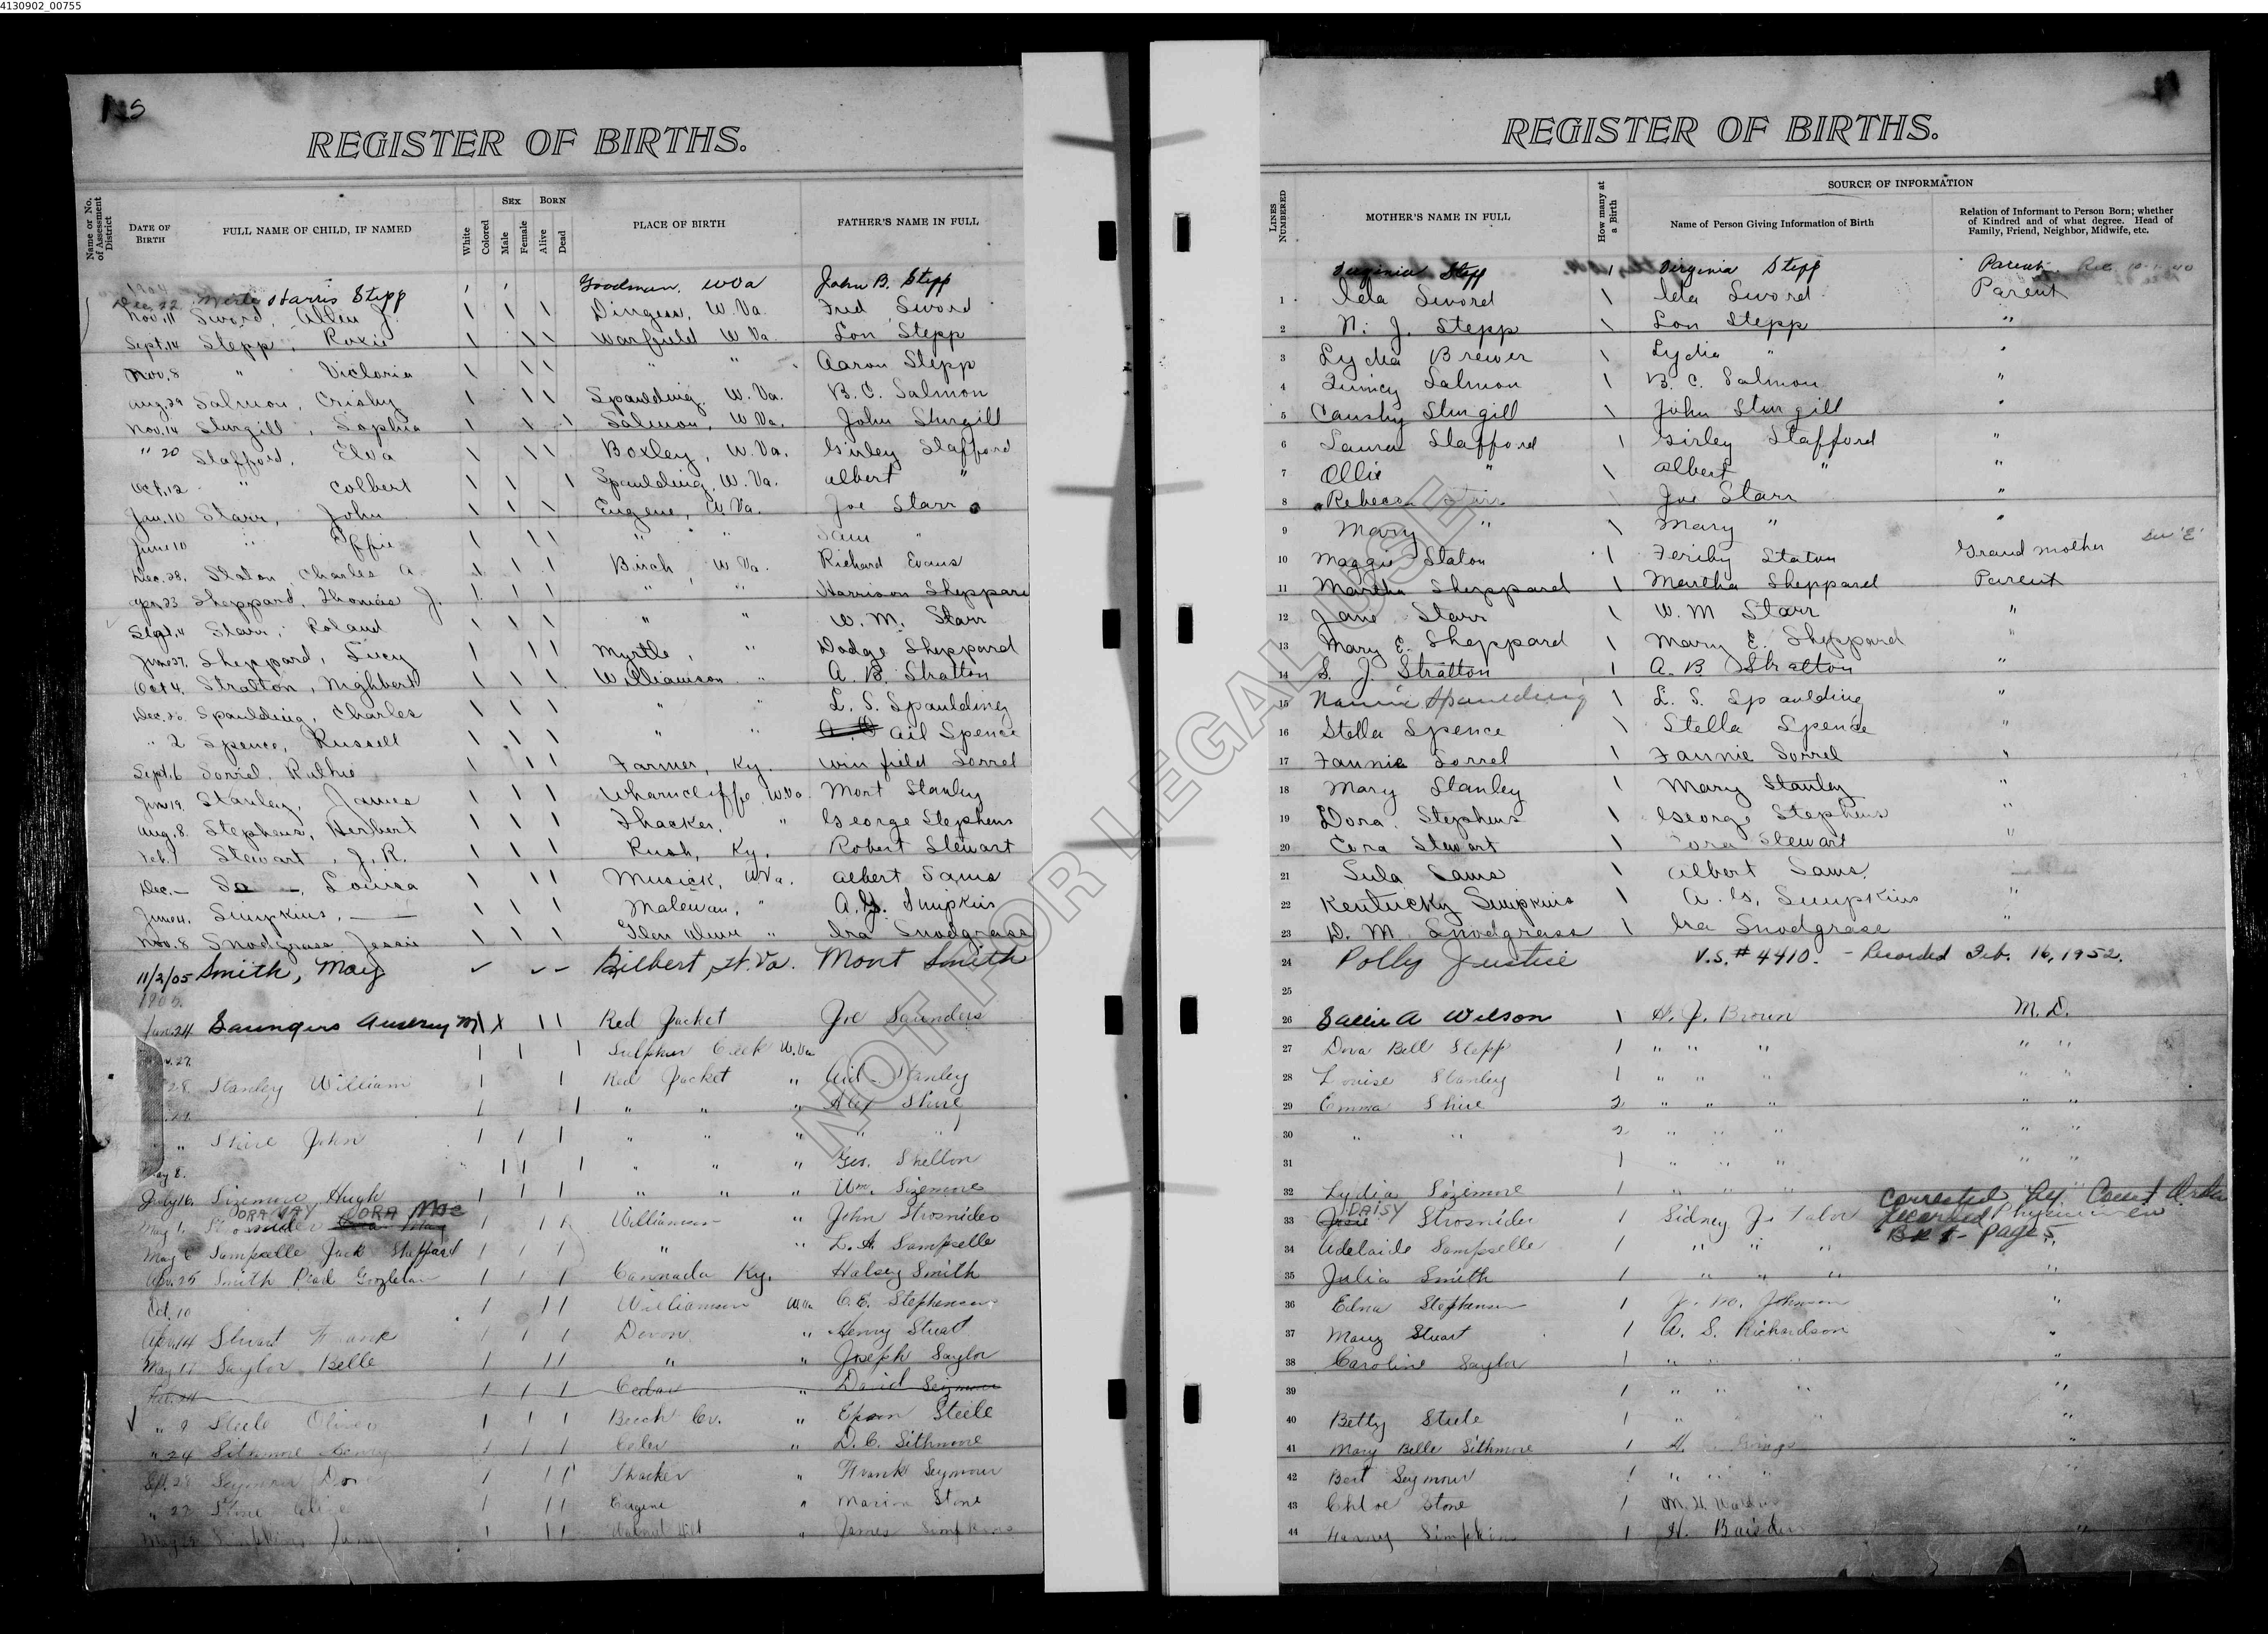 4130902_00755
S
REGISTER OF BIRTHS.
Name or No. of Assessment District
DATE OF BIRTH
FULL NAME OF CHILD, IF NAMED
White
Colored
SEX
Male
Female
BORN
Alive
Dead
PLACE OF BIRTH
FATHER'S NAME IN FULL
1904
Dec. 22 Harris Stepp Goodman, W Va John B. Stepp
Nov. 11 Sword, Allen J. Dingess, W. Va. Fred Sword
Sept. 14 Stepp, Roxie Warfield W Va. Lon Stepp
Nov. 8 " Victoria " " Aaron Stepp
Aug. 29 Salmon, Crisby Spaulding, W. Va. B. C. Salmon
Nov. 14 Sturgill, Sophia Salmon, W Va. John Sturgill
" 20 Stafford, Elva Boxley, W. Va. Girley Stafford
Oct. 12 " Colbert Spaulding, W. Va. Albert "
Jan. 10 Starr, John Eugene, W. Va. Joe Starr
June 10 " Effie " " Sam "
Dec. 28. Staton, Charles A. Birch, W Va. Richard Evans
Apr. 23 Sheppard, Thomas J. " " Harrison Sheppard
Sept. 4 Starr, Roland " " W. M. Starr
June 27. Sheppard, Lucy Myrtle, " Dodge Sheppard
Oct 4. Stratton, Nighbert Williamson " A. B. Stratton
Dec. Spaulding, Charles " " L. S. Spaulding
" 2 Spence, Russell " " Ail Spence
Sept. 6 Sorrel, Ruthie Farmer, Ky. Winfield Sorrel
June 19. Stanley, James Wharncliffe, W.Va. Mont Stanley
Aug. 8. Stephens, Herbert Thacker, " George Stephens
Feb. Stewart, J. R. Rush, Ky. Robert Stewart
Dec. — Louisa Musick, W Va. Albert Sams
June 4. Simpkins, — Matewan, " A. G. Simpkins
Nov. 8 Snodgrass, Jessie Glen " Ira Snodgrass
11/2/05 Smith, May Gilbert, W. Va. Mont Smith
1905.
Jan. 24 Saunders M Red Jacket Joe Saunders
27. Sulphur Creek W. Va
28. Stanley William Red Jacket " Stanley
29. " " " Alex Shire
" Shire John " " " " "
May 8. " " " Geo. Shelton
July 16. Sizemore, Hugh " " " Wm. Sizemore
ORA MAY ORA Mae
May 1. Strosnider Williamson " John Strosnider
May 6 Sampselle Jack Stafford " " L. A. Sampselle
Apr. 25 Smith Pearl Cannada Ky. Halsey Smith
Oct. 10 Williamson W Va C. E. Stephenson
Apr. 14 Stuart Frank Devon " Henry Stuart
May 17 Saylor Belle " " Joseph Saylor
Feb. 24 Cedar " David Seymour
" 9 Steele Oliver Beech Cr. " Steele
" 24 Sithmore Henry " D. C. Sithmore
Sept. Seymour Thacker " Frank Seymour
" Stone Eugene " Marion Stone
May Simpkins Walnut Hill " James Simpkins
REGISTER OF BIRTHS.
LINES NUMBERED
MOTHER'S NAME IN FULL
How many at a Birth
SOURCE OF INFORMATION
Name of Person Giving Information of Birth
Relation of Informant to Person Born; whether of Kindred and of what degree. Head of Family, Friend, Neighbor, Midwife, etc.
Virginia Stepp 1 Virginia Stepp Parent
1 Ida Sword 1 Ida Sword Parent
2 N. J. Stepp 1 Lon Stepp "
3 Lydia Brewer 1 Lydia " "
4 Quincy Salmon 1 B. C. Salmon "
5 Caushy Sturgill 1 John Sturgill "
6 Laura Stafford 1 Girley Stafford "
7 Ollie " 1 Albert " "
8 Rebecca Starr 1 Joe Starr "
9 Mary " 1 Mary " "
10 Maggie Staton 1 Feriby Staton Grand mother See 'E'
11 Martha Sheppard 1 Martha Sheppard Parent
12 Jane Starr 1 W. M Starr "
13 Mary E. Sheppard 1 Mary E. Sheppard "
14 S. J. Stratton 1 A. B Stratton "
15 Nannie Spaulding 1 L. S. Spaulding "
16 Stella Spence 1 Stella Spence "
17 Fannie Sorrel 1 Fannie Sorrel "
18 Mary Stanley 1 Mary Stanley "
19 Dora Stephens 1 George Stephens "
20 Cora Stewart 1 Cora Stewart "
21 Lula Sams 1 Albert Sams.
22 Kentucky Simpkins 1 A. G. Simpkins "
23 D. M. Snodgrass 1 Ira Snodgrass "
24 Polly Justice V.S. # 4410. - Recorded Feb. 16, 1952.
25
26 Sallie A Wilson 1 H. J. Brown M. D.
27 Dova Bell Stepp 1 " " " " "
28 Louise Stanley 1 " " " " "
29 Emma Shire 2 " " " " "
30 " " 2 " " " " "
31 1 " " " " "
32 Lydia Sizemore 1 " " " "
Corrected by Court Order
33 DAISY Strosnider 1 Sidney J. Tabor Recorded Physician
BK 1 - page 5
34 Adelaide Sampselle 1 " " "
35 Julia Smith 1 " " " "
36 Edna Stephenson 1 Johnson "
37 Mary Stuart 1 A. S. Richardson "
38 Caroline Saylor 1 " " " "
39 1 " " " "
40 Betty Steele 1 " " "
41 Mary Belle Sithmore 1 "
42 Bert Seymour 1 " " "
43 Chloe Stone 1 M. H.
44 Simpkins 1 H. "
NOT FOR LEGAL USE